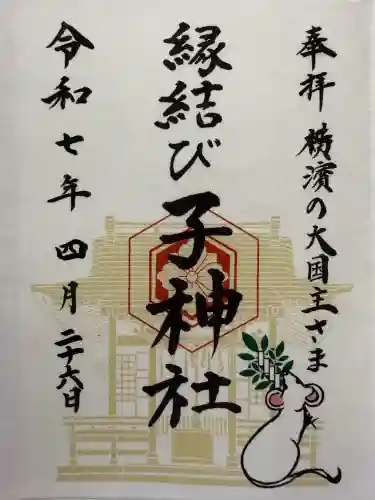 奉拝 横濱の大国主さま
縁結び子神社
令和七年四月二十六日